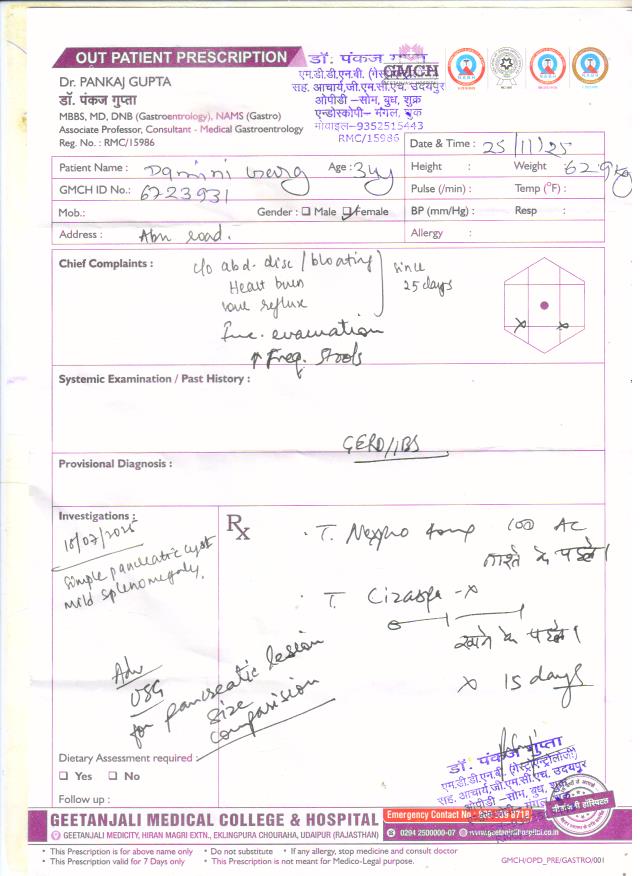 OUT PATIENT PRESCRIPTION
Dr. PANKAJ GUPTA
डॉ. पंकज गुप्ता
MBBS, MD, DNB (Gastroentrology), NAMS (Gastro)
Associate Professor, Consultant - Medical Gastroenterology
Reg. No. : RMC/15986
डॉ. पंकज गुप्ता
एम.डी.डी.एन.बी.
GMCH
सह. आचार्य,जी.एम.सी.एच. उदयपुर
ओपीडी –सोम, बुध, शुक्र
एन्डोस्कोपी– मंगल,
मोबाइल-9352515443
RMC/15986
Date & Time : 25/11/25
Patient Name : Damini Garg Age : 34y
Height : Weight : 62.9 Kg
GMCH ID No.: 6723931
Pulse (/min) : Temp (°F) :
Mob.: Gender : ☐ Male ☑ Female
BP (mm/Hg) : Resp :
Address : Abu road.
Allergy :
Chief Complaints : c/o abd. disc / bloating
Heart burn
reflux
since
25 days
Inc. evacuation
↑ Freq. stools
Systemic Examination / Past History :
GERD/IBS
Provisional Diagnosis :
Investigations :
10/07/2025
Simple pancreatic cyst
mild splenomegaly.
Rx
T. 100 AC
नाश्ते के पहले।
T. - x
खाने के पहले।
x 15 days
Adv
USG
for pancreatic lesion
size
comparision
Dietary Assessment required :
☐ Yes ☐ No
Follow up :
डॉ. पंकज गुप्ता
एम.डी.डी.एन.बी. (गैस्ट्रोएन्ट्रोलॉजी)
सह. आचार्य,जी.एम.सी.एच. उदयपुर
ओपीडी –सोम, बुध,
GEETANJALI MEDICAL COLLEGE & HOSPITAL
GEETANJALI MEDICITY, HIRAN MAGRI EXTN., EKLINGPURA CHOURAHA, UDAIPUR (RAJASTHAN)
Emergency Contact No.
0294 2500000-07 www.geetanjalihospital.co.in
• This Prescription is for above name only • Do not substitute • If any allergy, stop medicine and consult doctor
• This Prescription valid for 7 Days only • This Prescription is not meant for Medico-Legal purpose.
GMCH/OPD_PRE/GASTRO/001